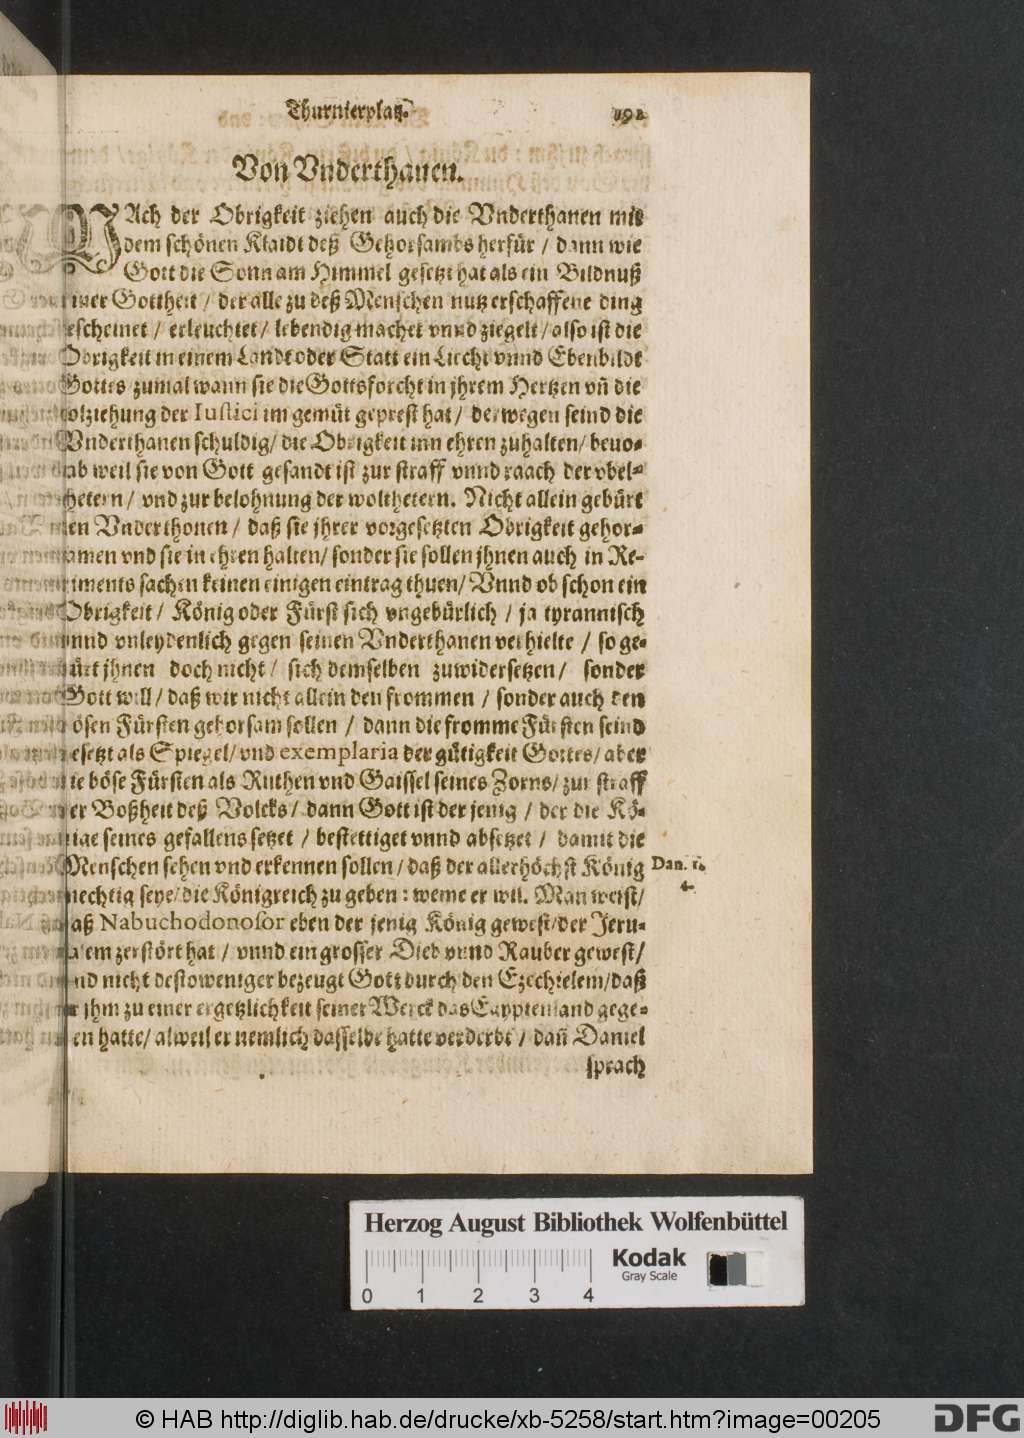 Thurnierplatz.
192
Von Vnderthanen.
NAch der Obrigkeit ziehen auch die Vnderthanen mit
dem schönen Klaidt deß Gehorsambs herfür / dann wie
Gott die Sonn am Himmel gesetzt hat als ein Bildnuß
iner Gottheit / der alle zu deß Menschen nutz erschaffene ding
escheinet / erleuchtet / lebendig machet vnnd ziegelt / also ist die
Obrigkeit in einem Landt oder Statt ein Liecht vnnd Ebenbildt
Gottes zumal wann sie die Gottsforcht in jhrem Hertzen vn̄ die
olziehung der Iustici im gemüt geprest hat / derwegen seind die
Vnderthanen schuldig / die Obrigkeit inn ehren zuhalten / beuo-
ab weil sie von Gott gesandt ist zur straff vnnd raach der vbel-
hetern / vnd zur belohnung der wolthetern. Nicht allein gebürt
en Vnderthonen / daß sie jhrer vorgesetzten Obrigkeit gehor-
amen vnd sie in ehren halten / sonder sie sollen jhnen auch in Re-
iments sachen keinen einigen eintrag thuen / Vnnd ob schon ein
Obrigkeit / König oder Fürst sich vngebürlich / ja tyrannisch
nnd vnleydenlich gegen seinen Vnderthanen verhielte / so ge-
ürt jhnen doch nicht / sich demselben zuwidersetzen / sonder
Gott will / daß wir nicht allein den frommen / sonder auch den
ösen Fürsten gehorsam sollen / dann die fromme Fürsten seind
esetzt als Spiegel / vnd exemplaria der gütigkeit Gottes / aber
ie böse Fürsten als Ruthen vnd Gaissel seines Zorns / zur straff
er Boßheit deß Volcks / dann Gott ist der jenig / der die Kö-
nige seines gefallens setzet / bestettiget vnnd absetzet / damit die
Menschen sehen vnd erkennen sollen / daß der allerhöchst König
Dan.
4.
nechtig seye / die Königreich zu geben : weme er wil. Man weist /
aß Nabuchodonosor eben der jenig König gewest / der Jeru-
alem zerstört hat / vnnd ein grosser Dieb vnnd Rauber gewest /
nd nicht destoweniger bezeugt Gott durch den Ezechielem / daß
r jhm zu einer ergetzlichkeit seiner Werck das Egyptenland gege-
en hatte / alweil er nemlich dasselbe hatte verderbt / dan̄ Daniel
sprach
Herzog August Bibliothek Wolfenbüttel
0 1 2 3 4
Kodak
Gray Scale
© HAB http://diglib.hab.de/drucke/xb-5258/start.htm?image=00205
DFG